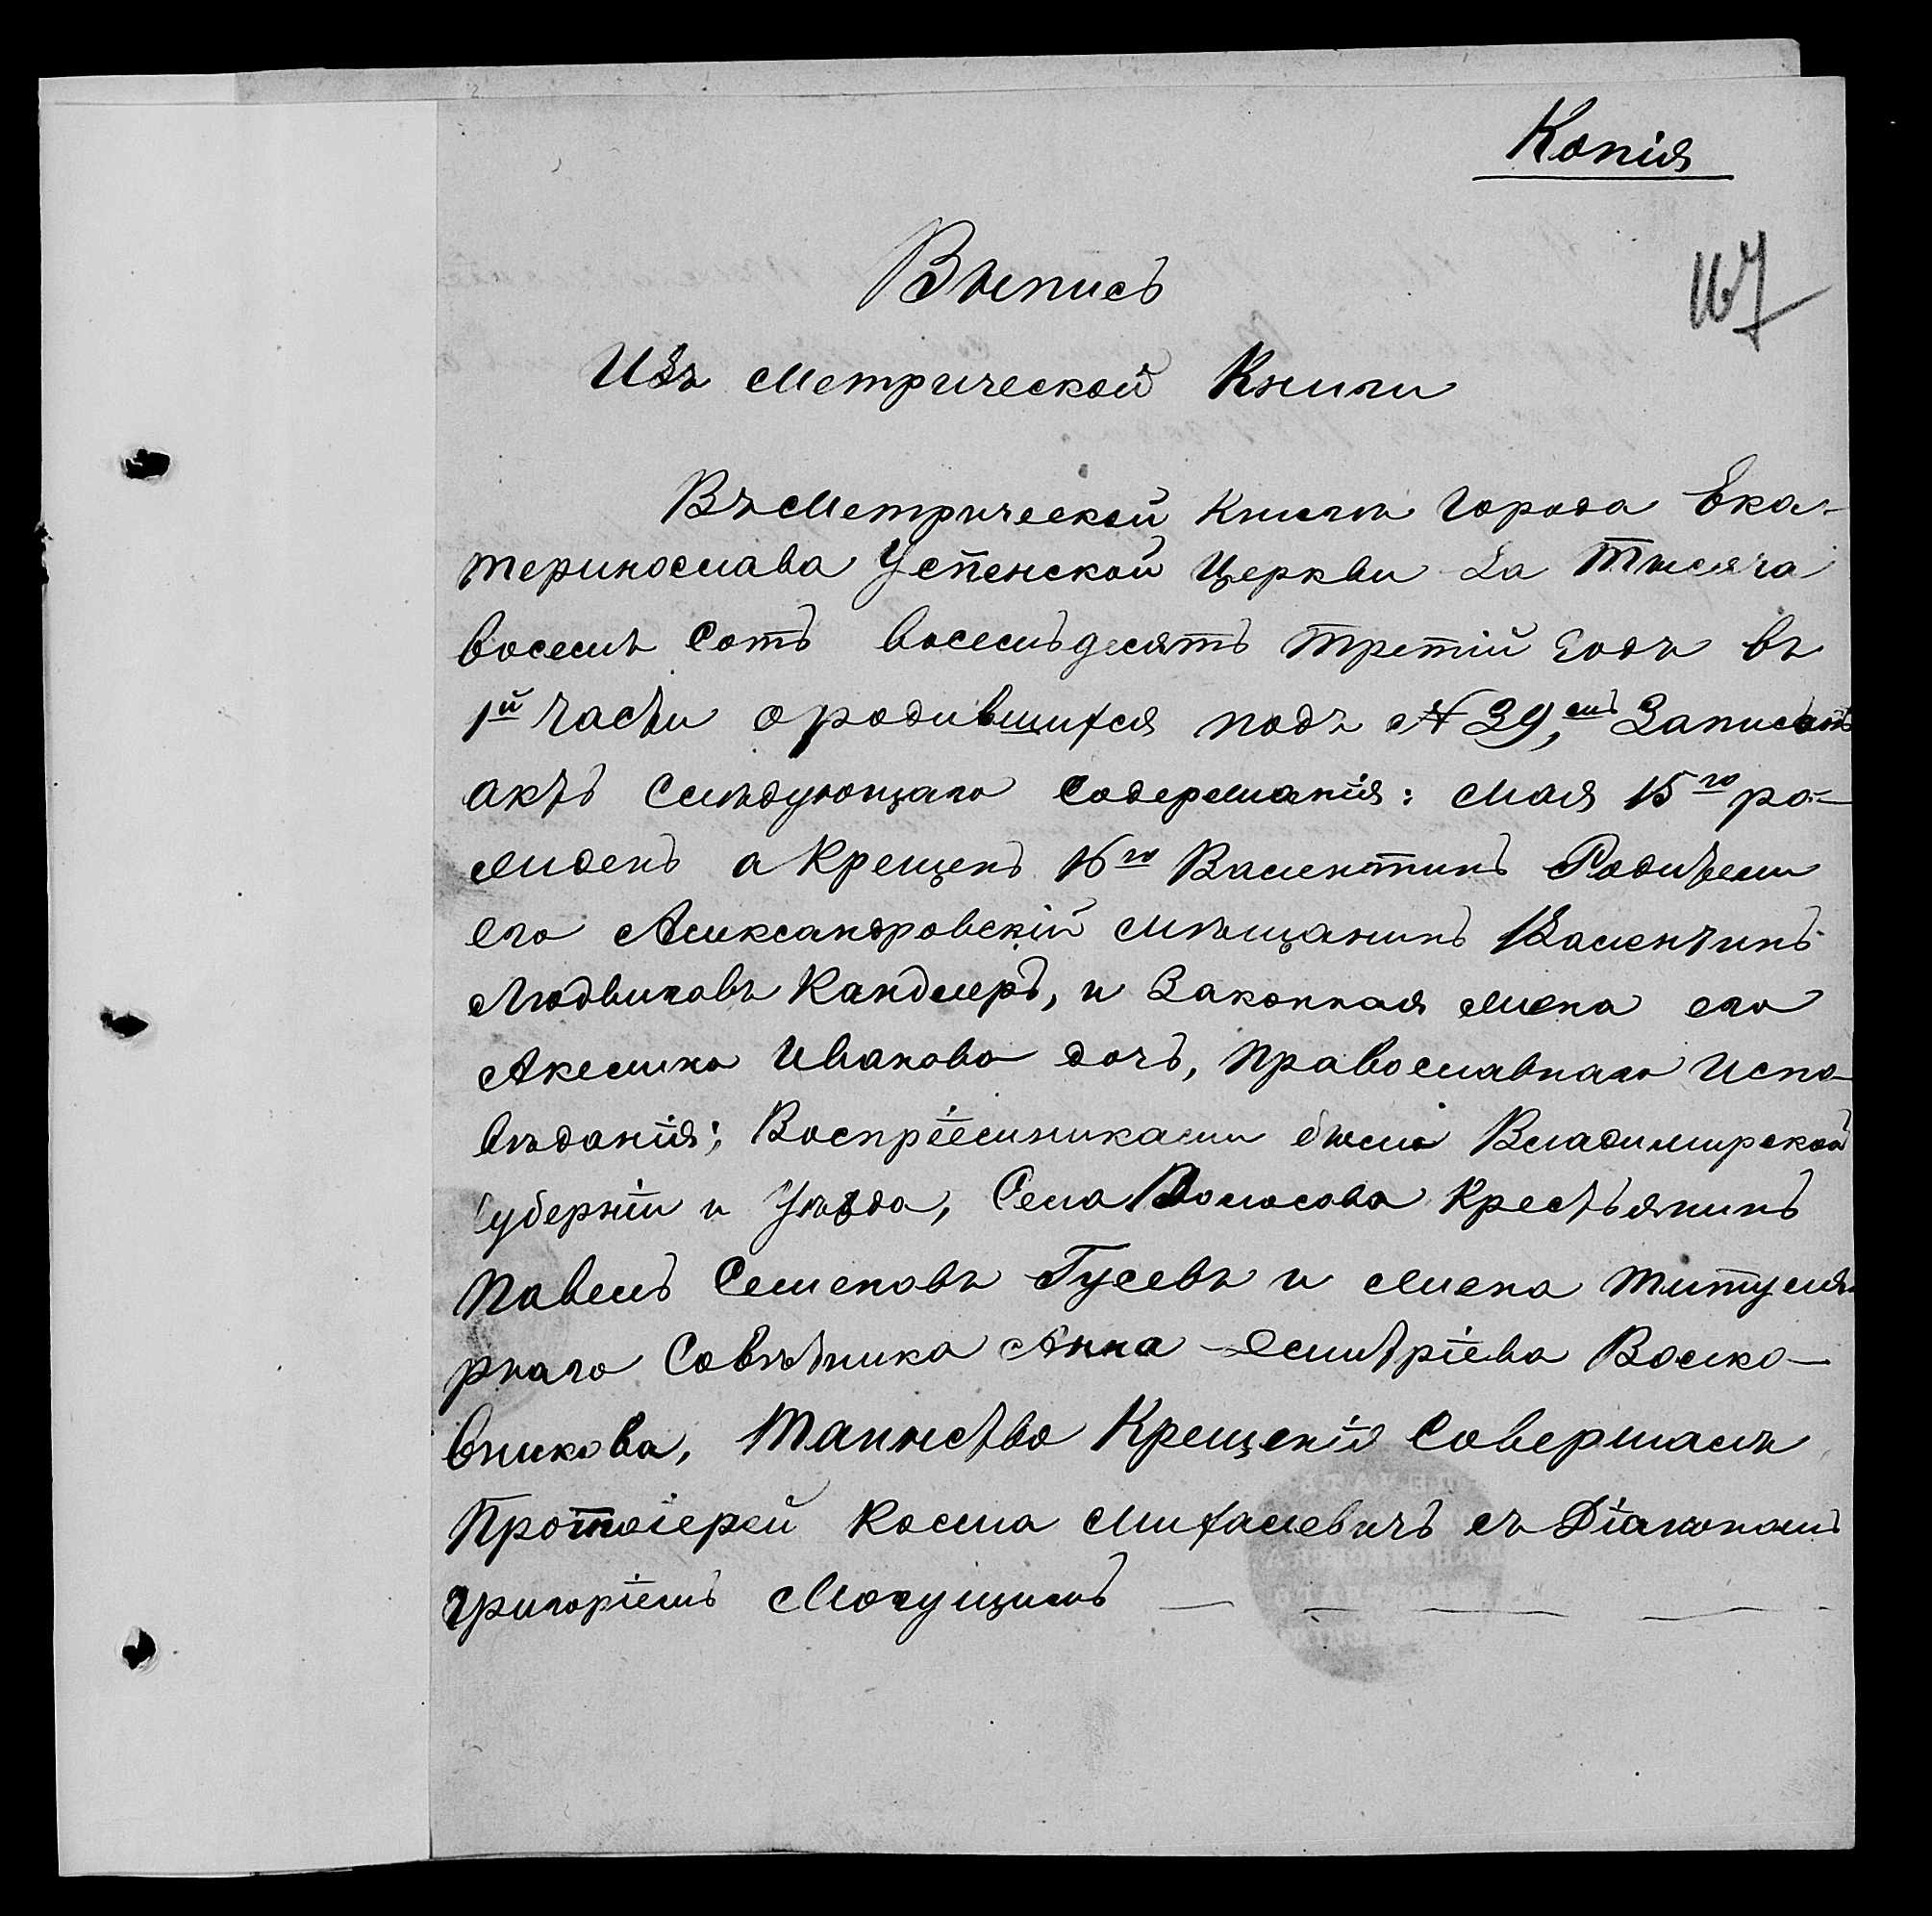 Копія
167
Выпись
Изъ Метрической Книги
Въ Метрической Книги города Ека-
теринослава Успенской Церкви За Тысяча
восемь Сотъ восемьдесятъ третій годъ въ
1й части о родившихся подъ № 39,мъ Записанъ
актъ Слѣдующаго Содержанія: Мая 15го ро-
жденъ а Крещенъ 16го Валентинъ Родители
его Александровскій мѣщанинъ Валентинъ
Людвиговъ Кандлеръ, и Законная жена его
Акелина Иванова дочь, православнаго испо-
вѣданія; Воспріемниками были Владимирской
губерніи и Уѣзда, Села Волосова Крестьянинъ
Павелъ Семеновъ Гусевъ и жена титуля-
рнаго Совѣтника Анна Дмитріева Воско-
вникова, Таинство Крещенія Совершалъ
Протоіерей Косма Михалевичъ съ Діакономъ
григоріемъ Могущимъ